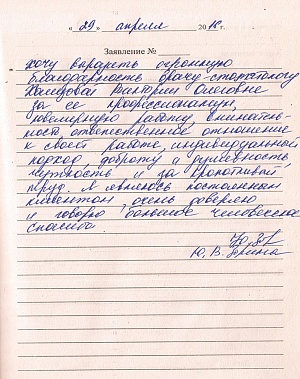 « 29 » апреля 2016 г.
Заявление №
хочу выразить огромную
благодарность врачу-стоматологу
Виктории Олеговне
за ее профессионализм,
ювелирную работу, вниматель-
ность, ответственное отношение
к своей работе, индивидуальный
подход, доброту и душевность,
чуткость и за кропотливый
труд. Я являюсь постоянным
клиентом, очень доверяю
и говорю большое человеческое
спасибо
Ю.В.